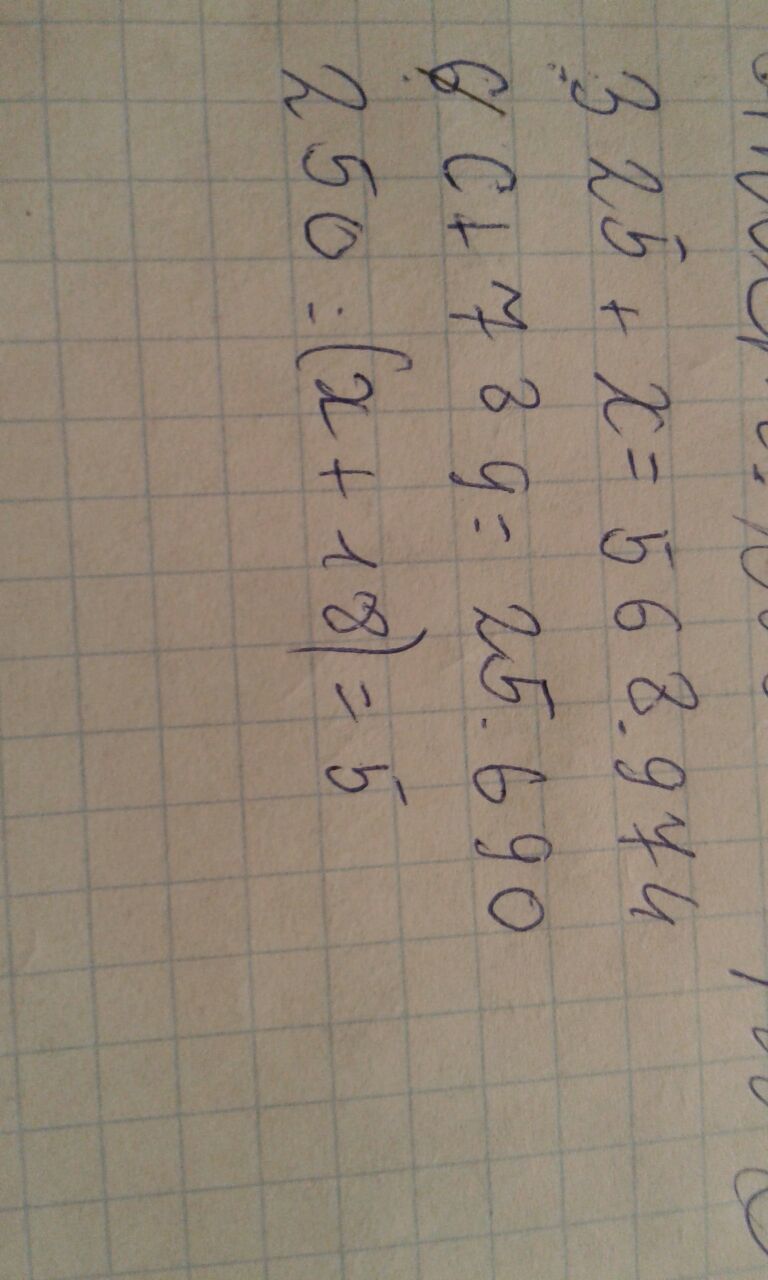 325 + x = 568.974
C + 789 = 25.690
250 : (x + 18) = 5